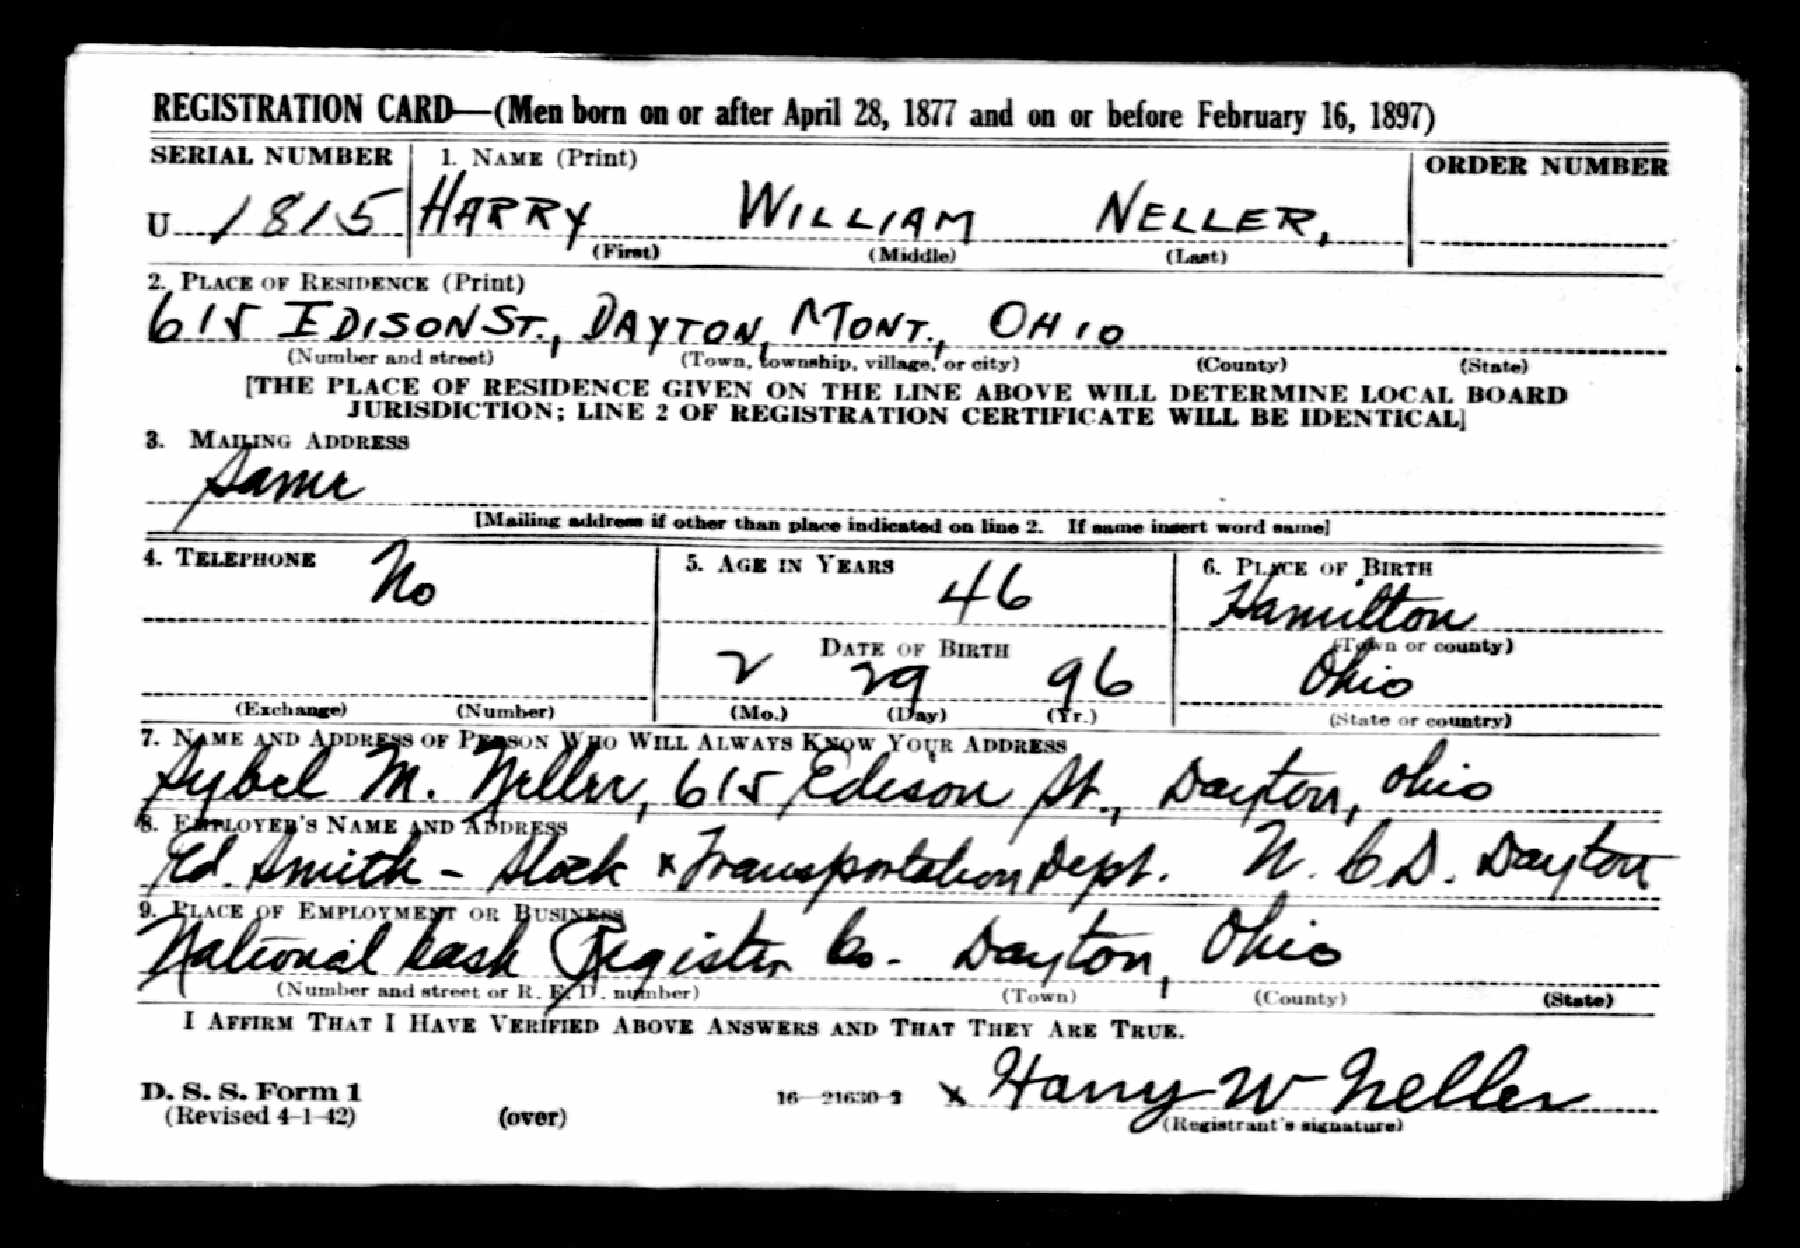 REGISTRATION CARD—(Men born on or after April 28, 1877 and on or before February 16, 1897)
SERIAL NUMBER 1. NAME (Print) ORDER NUMBER
U 1815 HARRY WILLIAM NELLER,
(First) (Middle) (Last)
2. PLACE OF RESIDENCE (Print)
615 EDISON ST., DAYTON, MONT., OHIO
(Number and street) (Town, township, village, or city) (County) (State)
[THE PLACE OF RESIDENCE GIVEN ON THE LINE ABOVE WILL DETERMINE LOCAL BOARD
JURISDICTION; LINE 2 OF REGISTRATION CERTIFICATE WILL BE IDENTICAL]
3. MAILING ADDRESS
Same
[Mailing address if other than place indicated on line 2. If same insert word same]
4. TELEPHONE 5. AGE IN YEARS 6. PLACE OF BIRTH
No 46 Hamilton
DATE OF BIRTH (Town or county)
2 29 96 Ohio
(Exchange) (Number) (Mo.) (Day) (Yr.) (State or country)
7. NAME AND ADDRESS OF PERSON WHO WILL ALWAYS KNOW YOUR ADDRESS
Sybel M. Neller, 615 Edison St., Dayton, Ohio
8. EMPLOYER'S NAME AND ADDRESS
Ed. Smith - Stock & Transportation Dept. N. C. Dayton
9. PLACE OF EMPLOYMENT OR BUSINESS
National Cash Register Co. Dayton, Ohio
(Number and street or R. F. D. number) (Town) (County) (State)
I AFFIRM THAT I HAVE VERIFIED ABOVE ANSWERS AND THAT THEY ARE TRUE.
D. S. S. Form 1
(Revised 4-1-42) (over) 16—21630-2 x Harry W Neller
(Registrant's signature)